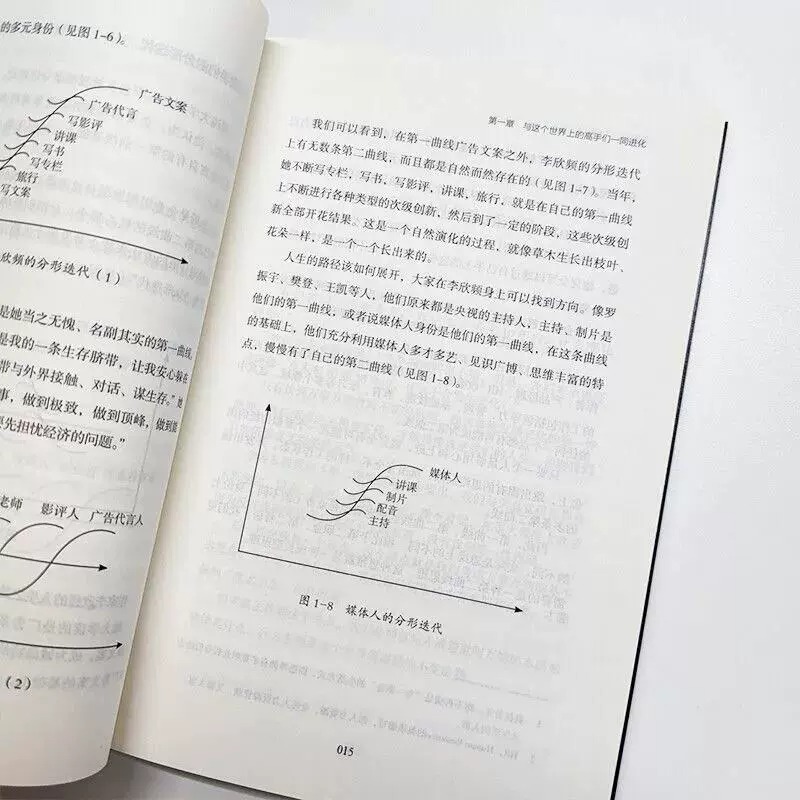 的多元身份（见图1-6）。
广告文案
广告代言
写影评
讲课
写书
写专栏
旅行
写文案
欣频的分形迭代（1）
是她当之无愧、名副其实的第一曲线，
是我的一条生存脐带，让我安心躲在
带与外界接触、对话、谋生存。”她
事，做到极致，做到顶峰，做到能
先担忧经济的问题。”
老师 影评人 广告代言人
（2）
第一章 与这个世界上的高手们一同进化
我们可以看到，在第一曲线广告文案之外，李欣频的分形迭代
上有无数条第二曲线，而且都是自然而然存在的（见图1-7）。当年，
她不断写专栏，写书，写影评，讲课，旅行，就是在自己的第一曲线
上不断进行各种类型的次级创新，然后到了一定的阶段，这些次级创
新全部开花结果。这是一个自然演化的过程，就像草木生长出枝叶、
花朵一样，是一个一个长出来的。
人生的路径该如何展开，大家在李欣频身上可以找到方向。像罗
振宇、樊登、王凯等人，他们原来都是央视的主持人，主持、制片是
他们的第一曲线，或者说媒体人身份是他们的第一曲线，在这条曲线
的基础上，他们充分利用媒体人多才多艺、见识广博、思维丰富的特
点，慢慢有了自己的第二曲线（见图1-8）。
媒体人
讲课
制片
配音
主持
图1-8 媒体人的分形迭代
015